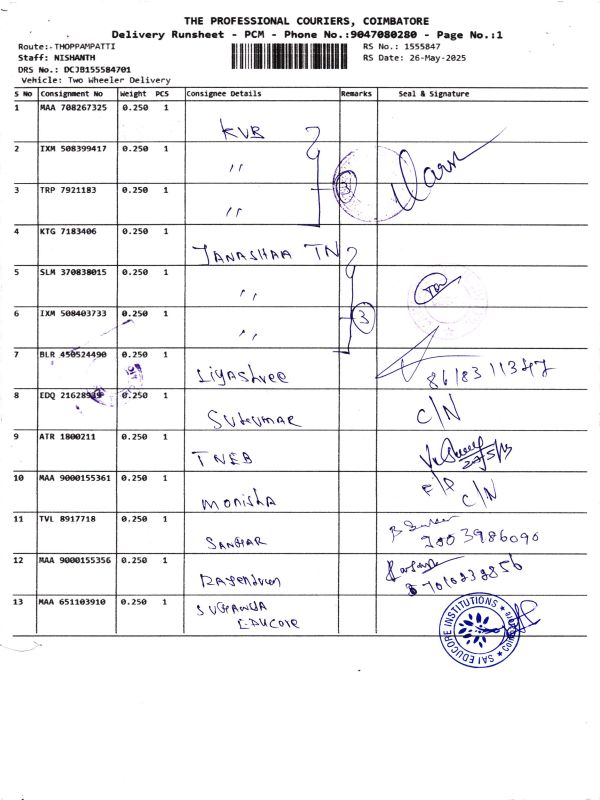 THE PROFESSIONAL COURIERS, COIMBATORE
Delivery Runsheet - PCM - Phone No.:9047080280 - Page No.:1
Route:- THOPPAMPATTI RS No.: 1555847
Staff: NISHANTH RS Date: 26-May-2025
DRS No.: DCJB155584701
Vehicle: Two Wheeler Delivery
S No Consignment No Weight PCS Consignee Details Remarks Seal & Signature
1 MAA 708267325 0.250 1 KVB
2 IXM 508399417 0.250 1 〃
3 TRP 7921183 0.250 1 〃 3
4 KTG 7183406 0.250 1 JANASHAA TN
5 SLM 370838015 0.250 1 〃
6 IXM 508403733 0.250 1 〃 3
7 BLR 450524490 0.250 1 Liyashree
8 EDQ 0.250 1 SUKUMAR C/N
9 ATR 1800211 0.250 1 TNEB
10 MAA 9000155361 0.250 1 MONISHA C/N
11 TVL 8917718 0.250 1 SANKAR
12 MAA 9000155356 0.250 1 Rajendran
13 MAA 651103910 0.250 1 SUGANYA
EDUCORE
SAI EDUCORE INSTITUTIONS